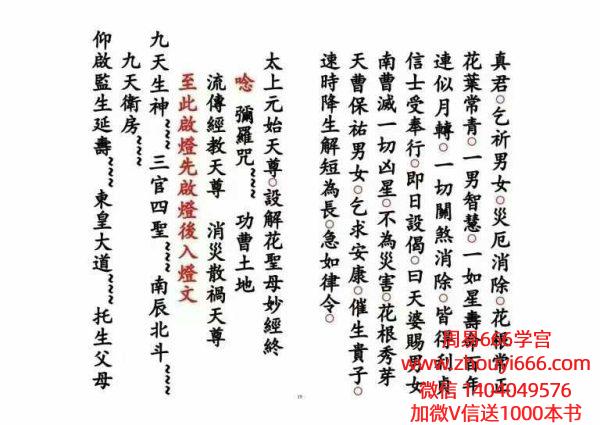 真君○乞祈男女○災厄消除○花根常正
花葉常青○一男智慧○一如星壽命百年
連似月轉○一切關煞消除○皆得利貞
信士受奉行○即日設偈○曰天婆賜男女
南曹滅一切凶星○不為災害○花根秀芽
天曹保祐男女○乞求安康○催生貴子○
速時降生解短為長○急如律令○
太上元始天尊○設解花聖母妙經終
唸 彌羅咒~~~ 功曹土地
流傳經教天尊 消災散禍天尊
至此啟燈先啟燈後入燈文
九天生神~~~ 三官四聖~~~ 南辰北斗~~~
九天衛房~~~
仰啟監生延壽~~~ 東皇大道~~~ 托生父母
周易666学宫
www.zhouyi666.com
微信 1404049576
加微V信送1000本书